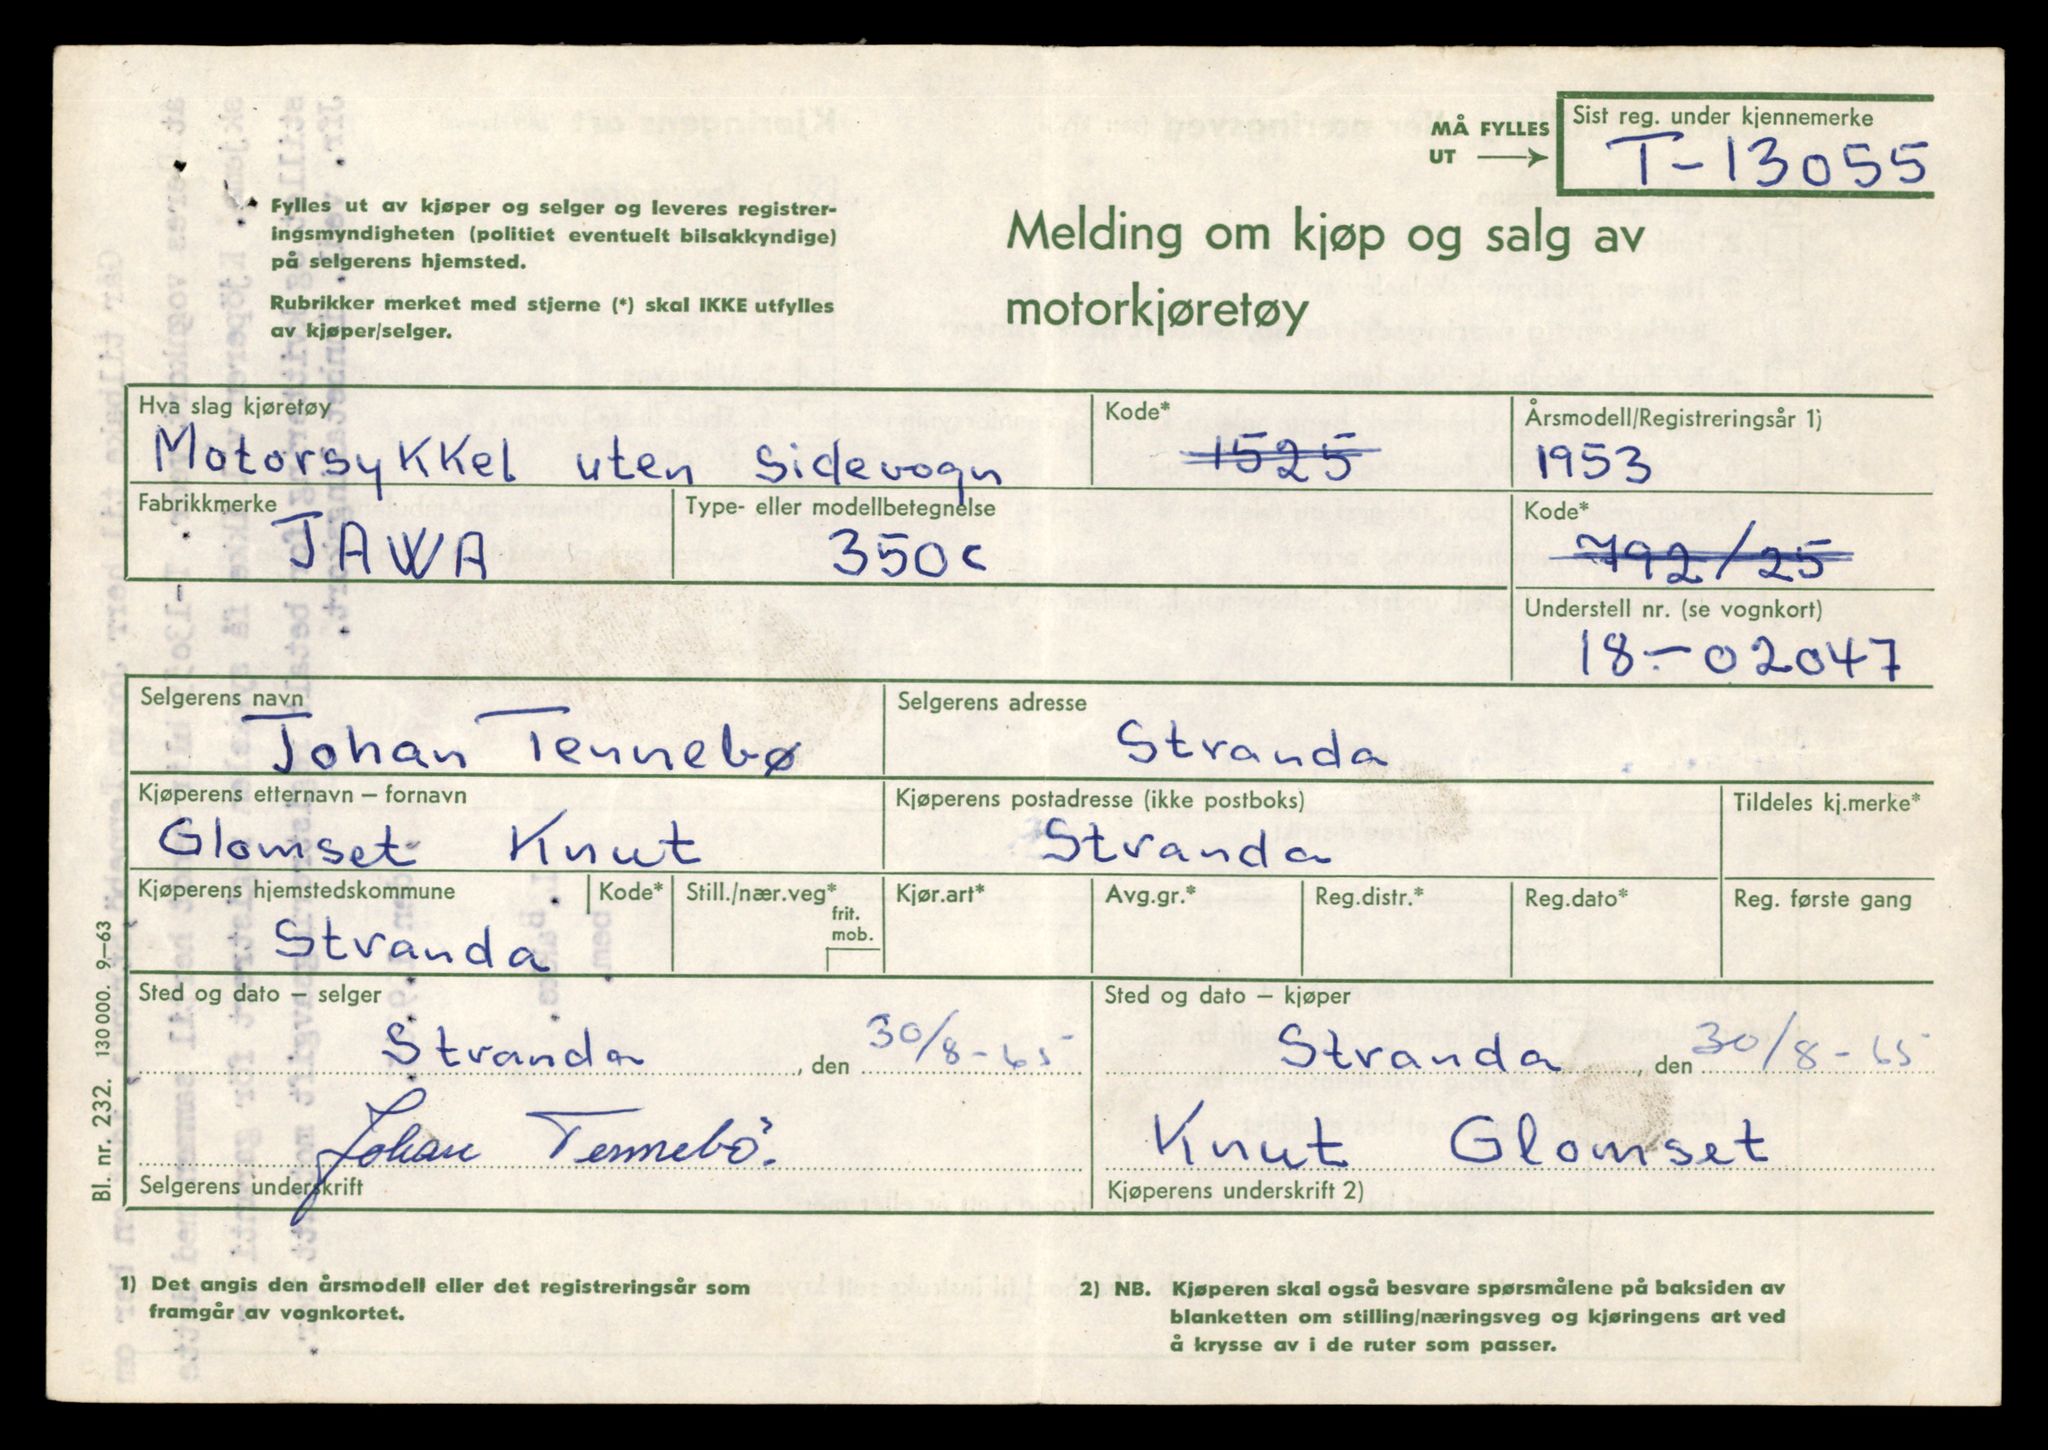 MÅ FYLLES
UT
Sist reg. under kjennemerke
T-13055
Fylles ut av kjøper og selger og leveres registrer-
ingsmyndigheten (politiet eventuelt bilsakkyndige)
på selgerens hjemsted.
Rubrikker merket med stjerne (*) skal IKKE utfylles
av kjøper/selger.
Melding om kjøp og salg av
motorkjøretøy
Hva slag kjøretøy
Motorsykkel uten sidevogn
Kode*
1525
Årsmodell/Registreringsår 1)
1953
Fabrikkmerke
JAWA
Type- eller modellbetegnelse
350c
Kode*
792/25
Understell nr. (se vognkort)
18-02047
Selgerens navn
Johan Tennebø
Selgerens adresse
Stranda
Kjøperens etternavn – fornavn
Glomset Knut
Kjøperens postadresse (ikke postboks)
Stranda
Tildeles kj.merke*
Kjøperens hjemstedskommune
Stranda
Kode*
Still./nær.veg*
frit.
mob.
Kjør.art*
Avg.gr.*
Reg.distr.*
Reg.dato*
Reg. første gang
Sted og dato – selger
Stranda, den 30/8-65
Sted og dato – kjøper
Stranda, den 30/8-65
Johan Tennebö.
Selgerens underskrift
Knut Glomset
Kjøperens underskrift 2)
Bl. nr. 232. 130 000. 9–63
1) Det angis den årsmodell eller det registreringsår som
framgår av vognkortet.
2) NB. Kjøperen skal også besvare spørsmålene på baksiden av
blanketten om stilling/næringsveg og kjøringens art ved
å krysse av i de ruter som passer.